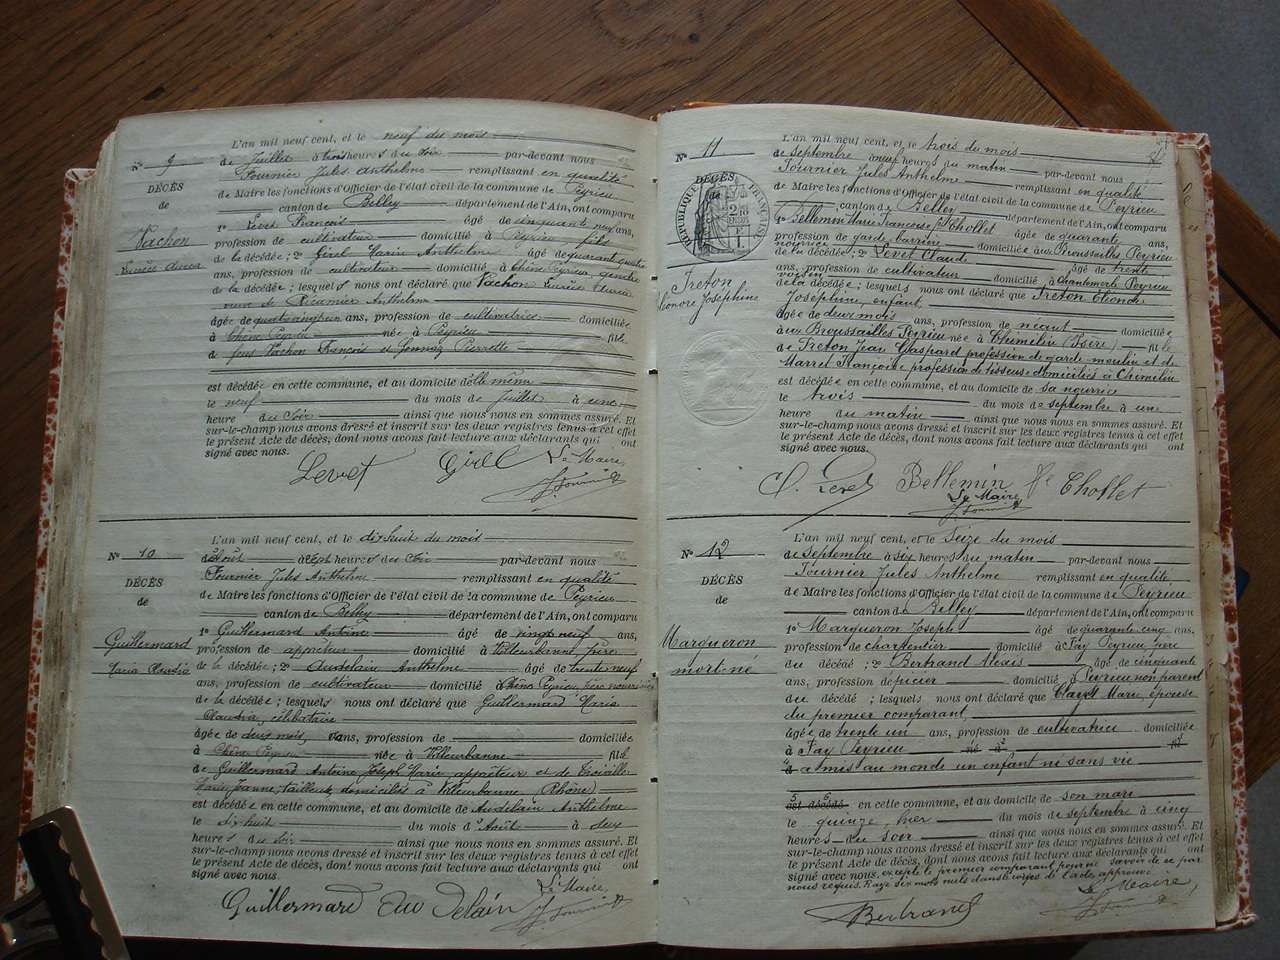 N° 9
DÉCÈS
de
Vachon
L'an mil neuf cent, et le neuf du mois
de Juillet à trois heures du soir par-devant nous
Fournier Jules Anthelme remplissant en qualité
de Maire les fonctions d'Officier de l'état civil de la commune de Peyrieu
canton de Belley département de l'Ain, ont comparu
1° Levet François âgé de cinquante neuf ans,
profession de cultivateur domicilié à Peyrieu, fils
de la décédée; 2° Girel Marin Anthelme âgé de quarante quatre
ans, profession de cultivateur domicilié à Chêne Peyrieu gendre
de la décédée; lesquels nous ont déclaré que Vachon
veuve de Anthelme
âgée de quatre vingt un ans, profession de cultivatrice domiciliée
à Chêne Peyrieu née à Peyrieu fille
de feus Vachon François et Pierrette
est décédée en cette commune, et au domicile d'elle même
le neuf du mois de juillet à une
heure du soir ainsi que nous nous en sommes assuré. Et
sur-le-champ nous avons dressé et inscrit sur les deux registres tenus à cet effet
le présent Acte de décès, dont nous avons fait lecture aux déclarants qui ont
signé avec nous.
Levet Girel Le Maire,
J. Fournier
N° 10
DÉCÈS
de
Guillermard
Maria Claudia
L'an mil neuf cent, et le dix huit du mois
d'Août à sept heures du soir par-devant nous
Fournier Jules Anthelme remplissant en qualité
de Maire les fonctions d'Officier de l'état civil de la commune de Peyrieu
canton de Belley département de l'Ain, ont comparu
1° Guillermard Antoine âgé de vingt neuf ans,
profession de apprêteur domicilié à Villeurbanne, père
de la décédée; 2° Audelain Anthelme âgé de trente neuf
ans, profession de cultivateur domicilié à Chêne Peyrieu, père nourricier
de la décédée; lesquels nous ont déclaré que Guillermard Maria
Claudia, célibataire
âgée de deux mois, ans, profession de domiciliée
à Chêne Peyrieu née à Villeurbanne fille
de Guillermard Antoine Joseph Marie, apprêteur et de
Marie Jeanne, tailleuse domiciliés à Villeurbanne (Rhône)
est décédée en cette commune, et au domicile de Audelain Anthelme
le dix huit du mois d'Août à deux
heures du soir ainsi que nous nous en sommes assuré. Et
sur-le-champ nous avons dressé et inscrit sur les deux registres tenus à cet effet
le présent Acte de décès, dont nous avons fait lecture aux déclarants qui ont
signé avec nous.
Le Maire,
Guillermard Audelain J. Fournier
N° 11
DÉCÈS
de
RÉPUBLIQUE FRANÇAISE
Treton
Léonore Joséphine
L'an mil neuf cent, et le trois du mois
de Septembre à neuf heures du matin par-devant nous
Fournier Jules Anthelme remplissant en qualité
de Maire les fonctions d'Officier de l'état civil de la commune de Peyrieu
canton de Belley département de l'Ain, ont comparu
1° Bellemin Marie Françoise Chollet âgée de quarante ans,
profession de garde barrière domiciliée aux Broussailles Peyrieu
nourrice
de la décédée; 2° Levet Claude âgé de trente
ans, profession de cultivateur domicilié à Chantemerle Peyrieu
voisin
de la décédée; lesquels nous ont déclaré que Treton Léonore
Joséphine, enfant
âgée de deux mois ans, profession de néant domiciliée
aux Broussailles Peyrieu née à Chimilin (Isère) fille
de Treton Jean Gaspard profession de garde-moulin et de
Marrel Françoise profession de tisseuse domiciliés à Chimilin
est décédée en cette commune, et au domicile de sa nourrice
le trois du mois de septembre à une
heure du matin ainsi que nous nous en sommes assuré. Et
sur-le-champ nous avons dressé et inscrit sur les deux registres tenus à cet effet
le présent Acte de décès, dont nous avons fait lecture aux déclarants qui ont
signé avec nous.
C. Levet Bellemin Fe Chollet
Le Maire
J. Fournier
N° 12
DÉCÈS
de
Margueron
mort-né
L'an mil neuf cent, et le Seize du mois
de Septembre à six heures du matin par-devant nous
Fournier Jules Anthelme remplissant en qualité
de Maire les fonctions d'Officier de l'état civil de la commune de Peyrieu
canton de Belley département de l'Ain, ont comparu
1° Margueron Joseph âgé de quarante cinq ans,
profession de charpentier domicilié à Fay Peyrieu, père
du décédé; 2° Bertrand Alexis âgé de cinquante
ans, profession d'épicier domicilié à Peyrieu non parent
du décédé; lesquels nous ont déclaré que Clayet Marie, épouse
du premier comparant,
âgée de trente un ans, profession de cultivatrice domiciliée
à Fay Peyrieu né à fil
a mis au monde un enfant né sans vie
est décédé en cette commune, et au domicile de son mari
le quinze, hier du mois de septembre à cinq
heures du soir ainsi que nous nous en sommes assuré. Et
sur-le-champ nous avons dressé et inscrit sur les deux registres tenus à cet effet
le présent Acte de décès, dont nous avons fait lecture aux déclarants qui ont
signé avec nous. excepté le premier comparant pour ne savoir de ce par
nous requis. Rayé six mots nuls dans le corps de l'acte approuvé.
Le Maire,
Bertrand J. Fournier